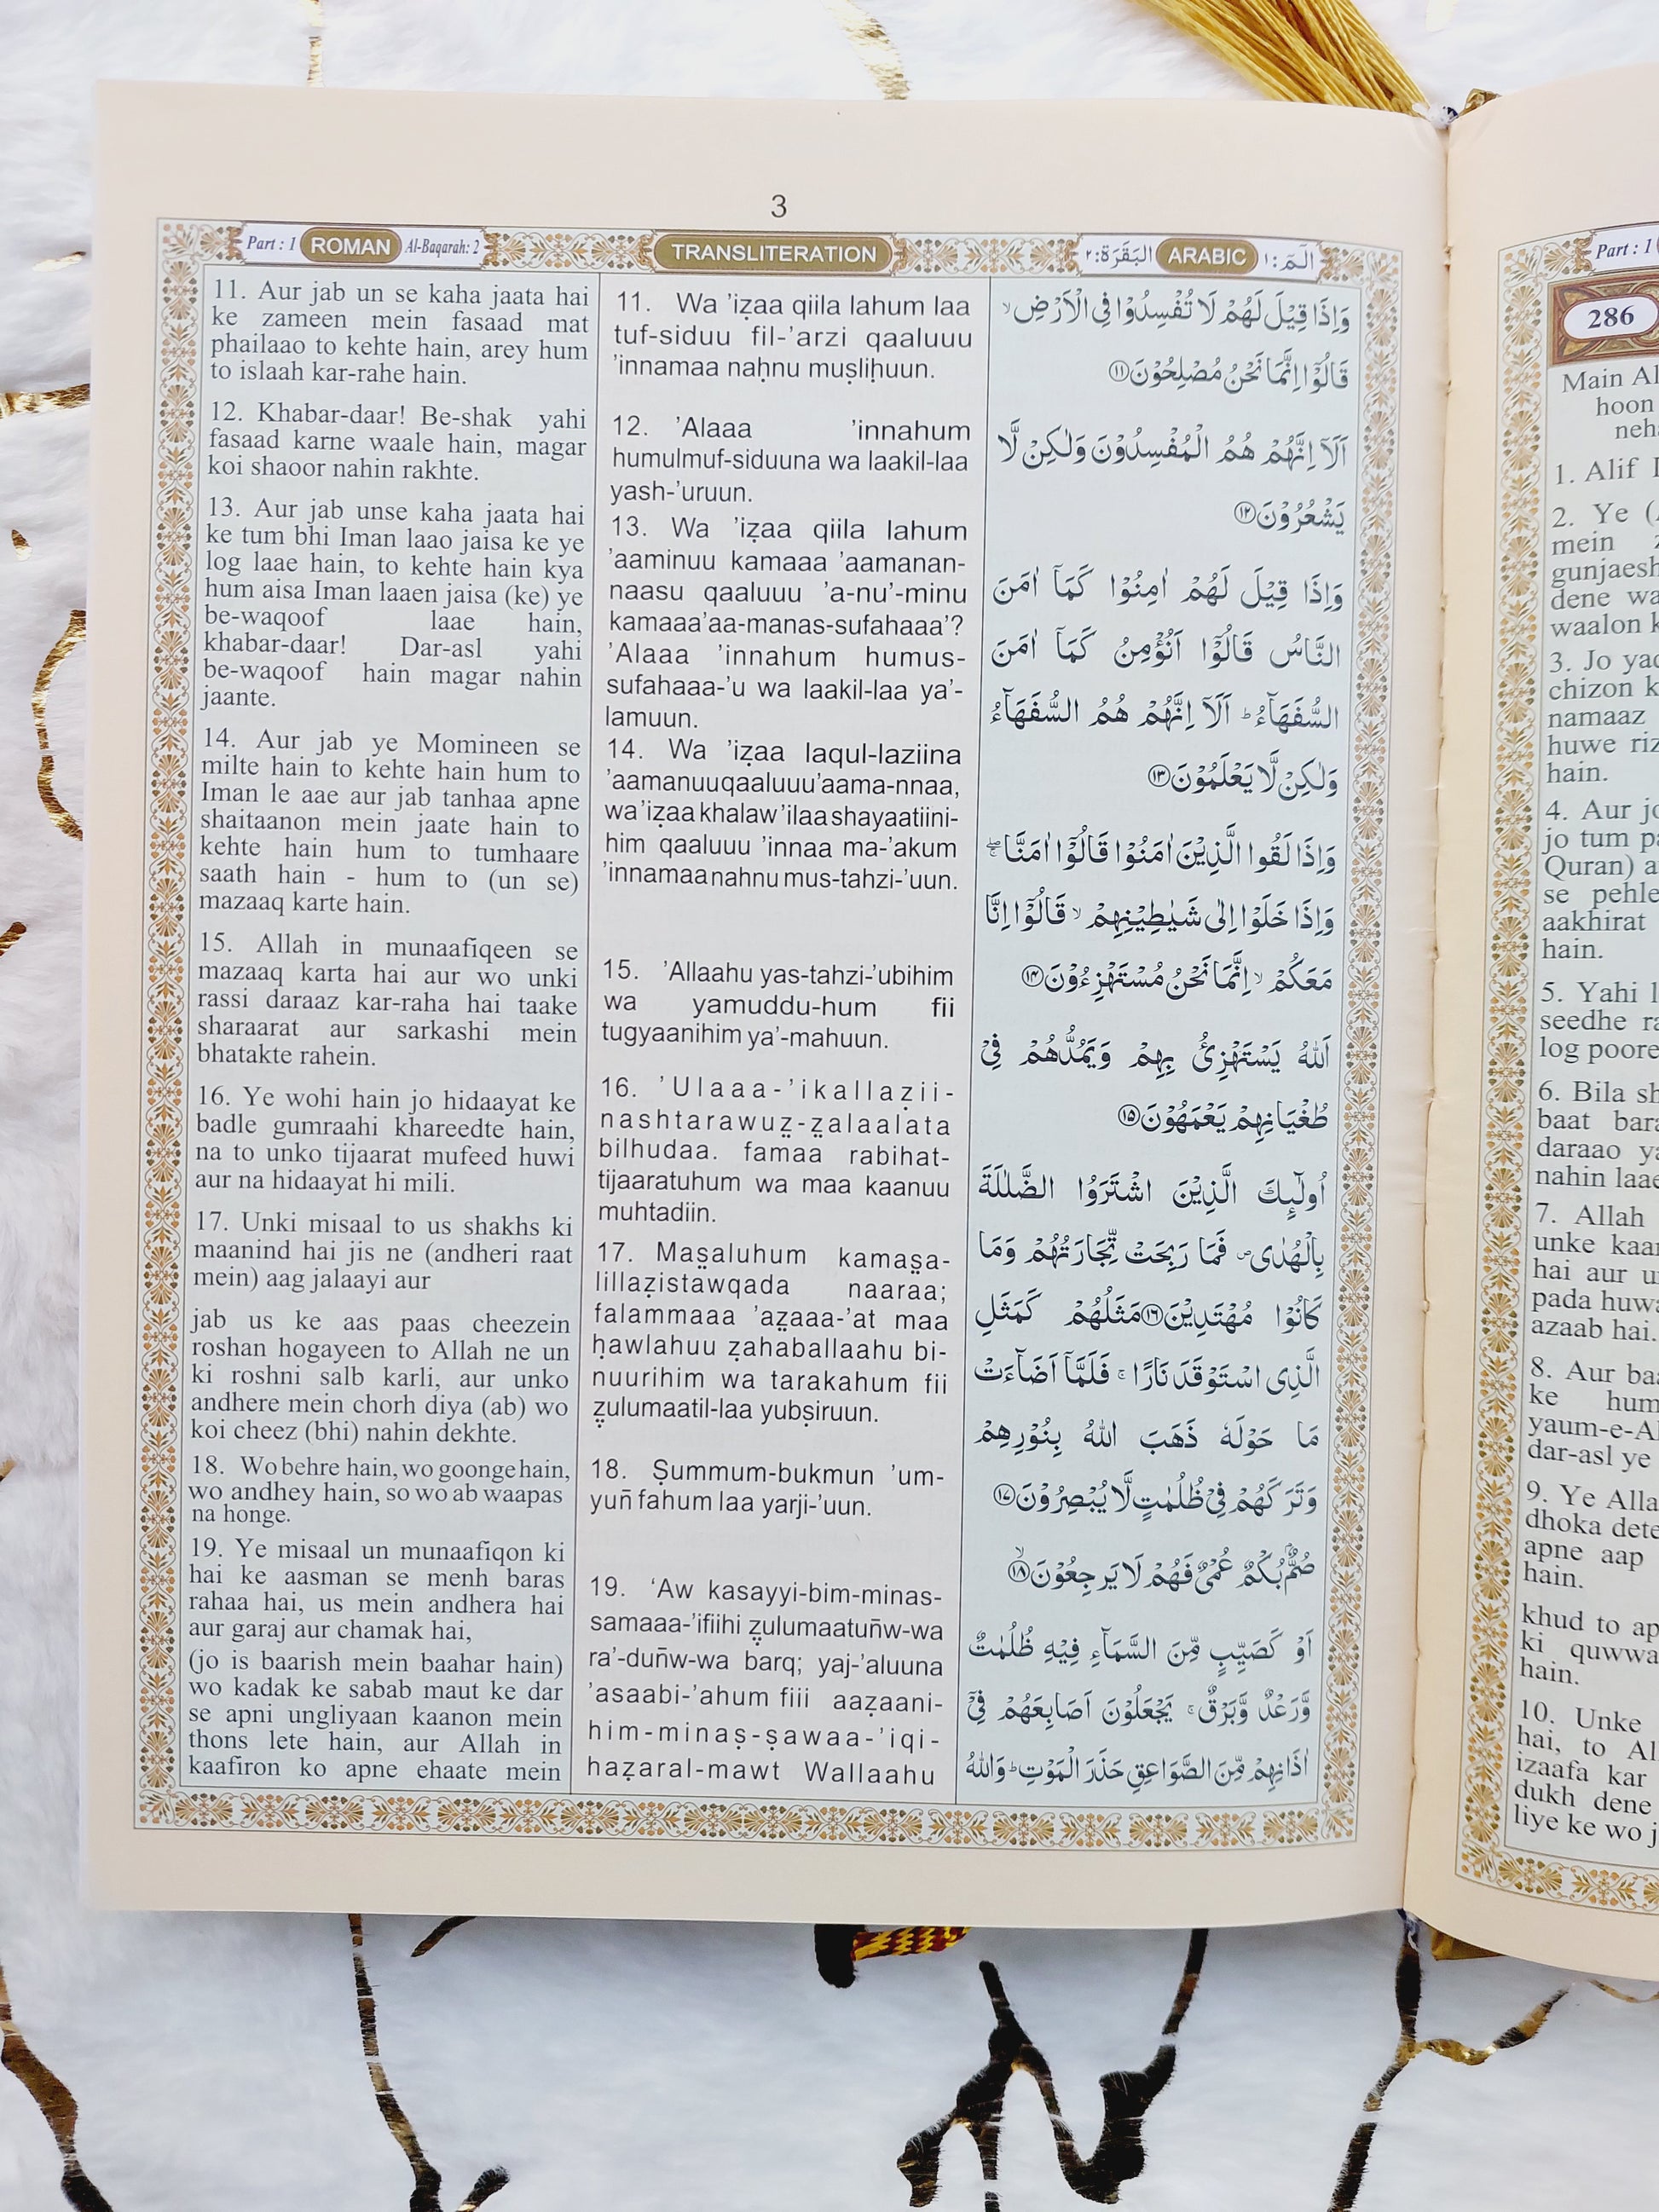 3
Part : 1 ROMAN Al-Baqarah: 2
TRANSLITERATION
البَقَرَة:٢ ARABIC الٓمّٓ:١
11. Aur jab un se kaha jaata hai
ke zameen mein fasaad mat
phailaao to kehte hain, arey hum
to islaah kar-rahe hain.
12. Khabar-daar! Be-shak yahi
fasaad karne waale hain, magar
koi shaoor nahin rakhte.
13. Aur jab unse kaha jaata hai
ke tum bhi Iman laao jaisa ke ye
log laae hain, to kehte hain kya
hum aisa Iman laaen jaisa (ke) ye
be-waqoof laae hain,
khabar-daar! Dar-asl yahi
be-waqoof hain magar nahin
jaante.
14. Aur jab ye Momineen se
milte hain to kehte hain hum to
Iman le aae aur jab tanhaa apne
shaitaanon mein jaate hain to
kehte hain hum to tumhaare
saath hain - hum to (un se)
mazaaq karte hain.
15. Allah in munaafiqeen se
mazaaq karta hai aur wo unki
rassi daraaz kar-raha hai taake
sharaarat aur sarkashi mein
bhatakte rahein.
16. Ye wohi hain jo hidaayat ke
badle gumraahi khareedte hain,
na to unko tijaarat mufeed huwi
aur na hidaayat hi mili.
17. Unki misaal to us shakhs ki
maanind hai jis ne (andheri raat
mein) aag jalaayi aur
jab us ke aas paas cheezein
roshan hogayeen to Allah ne un
ki roshni salb karli, aur unko
andhere mein chorh diya (ab) wo
koi cheez (bhi) nahin dekhte.
18. Wo behre hain, wo goonge hain,
wo andhey hain, so wo ab waapas
na honge.
19. Ye misaal un munaafiqon ki
hai ke aasman se menh baras
rahaa hai, us mein andhera hai
aur garaj aur chamak hai,
(jo is baarish mein baahar hain)
wo kadak ke sabab maut ke dar
se apni ungliyaan kaanon mein
thons lete hain, aur Allah in
kaafiron ko apne ehaate mein
11. Wa ’iẓaa qiila lahum laa
tuf-siduu fil-’arzi qaaluuu
’innamaa naḥnu muṣliḥuun.
12. ’Alaaa ’innahum
humulmuf-siduuna wa laakil-laa
yash-’uruun.
13. Wa ’iẓaa qiila lahum
’aaminuu kamaaa ’aamanan-
naasu qaaluuu ’a-nu’-minu
kamaaa’aa-manas-sufahaaa’?
’Alaaa ’innahum humus-
sufahaaa-’u wa laakil-laa ya’-
lamuun.
14. Wa ’iẓaa laqul-laziina
’aamanuu qaaluuu ’aama-nnaa,
wa ’iẓaa khalaw ’ilaa shayaatiini-
him qaaluuu ’innaa ma-’akum
’innamaa nahnu mus-tahzi-’uun.
15. ’Allaahu yas-tahzi-’ubihim
wa yamuddu-hum fii
tugyaanihim ya’-mahuun.
16. ’Ulaaa-’ikallaẓii-
nashtarawuẓ-ẓalaalata
bilhudaa. famaa rabihat-
tijaaratuhum wa maa kaanuu
muhtadiin.
17. Maṣaluhum kamaṣa-
lillaẓistawqada naaraa;
falammaaa ’aẓaaa-’at maa
ḥawlahuu ẓahaballaahu bi-
nuurihim wa tarakahum fii
ẓulumaatil-laa yubṣiruun.
18. Ṣummum-bukmun ’um-
yuñ fahum laa yarji-’uun.
19. ‘Aw kasayyi-bim-minas-
samaaa-’ifiihi ẓulumaatuñw-wa
ra’-duñw-wa barq; yaj-’aluuna
’asaabi-’ahum fiii aaẓaani-
him-minaṣ-ṣawaa-’iqi-
haẓaral-mawt Wallaahu
وَاِذَا قِيْلَ لَهُمْ لَا تُفْسِدُوْا فِى الْاَرْضِ ۙ
قَالُوْۤا اِنَّمَا نَحْنُ مُصْلِحُوْنَ ﴿۱۱﴾
اَلَاۤ اِنَّهُمْ هُمُ الْمُفْسِدُوْنَ وَلٰكِنْ لَّا
يَشْعُرُوْنَ ﴿۱۲﴾
وَاِذَا قِيْلَ لَهُمْ اٰمِنُوْا كَمَاۤ اٰمَنَ
النَّاسُ قَالُوْۤا اَنُؤْمِنُ كَمَاۤ اٰمَنَ
السُّفَهَآءُ ؕ اَلَاۤ اِنَّهُمْ هُمُ السُّفَهَآءُ
وَلٰكِنْ لَّا يَعْلَمُوْنَ ﴿۱۳﴾
وَاِذَا لَقُوا الَّذِيْنَ اٰمَنُوْا قَالُوْۤا اٰمَنَّا ۖۚ
وَاِذَا خَلَوْا اِلٰى شَيٰطِيْنِهِمْ ۙ قَالُوْۤا اِنَّا
مَعَكُمْ ۙ اِنَّمَا نَحْنُ مُسْتَهْزِءُوْنَ ﴿۱۴﴾
اَللّٰهُ يَسْتَهْزِئُ بِهِمْ وَيَمُدُّهُمْ فِىْ
طُغْيَانِهِمْ يَعْمَهُوْنَ ﴿۱۵﴾
اُولٰٓئِكَ الَّذِيْنَ اشْتَرَوُا الضَّلٰلَةَ
بِالْهُدٰى ۪ فَمَا رَبِحَتْ تِّجَارَتُهُمْ وَمَا
كَانُوْا مُهْتَدِيْنَ ﴿۱۶﴾ مَثَلُهُمْ كَمَثَلِ
الَّذِى اسْتَوْقَدَ نَارًا ۚ فَلَمَّاۤ اَضَآءَتْ
مَا حَوْلَهٗ ذَهَبَ اللّٰهُ بِنُوْرِهِمْ
وَتَرَكَهُمْ فِىْ ظُلُمٰتٍ لَّا يُبْصِرُوْنَ ﴿۱۷﴾
صُمٌّۢ بُكْمٌ عُمْىٌ فَهُمْ لَا يَرْجِعُوْنَ ۙ﴿۱۸﴾
اَوْ كَصَيِّبٍ مِّنَ السَّمَآءِ فِيْهِ ظُلُمٰتٌ
وَّرَعْدٌ وَّبَرْقٌ ۚ يَجْعَلُوْنَ اَصَابِعَهُمْ فِىْۤ
اٰذَانِهِمْ مِّنَ الصَّوَاعِقِ حَذَرَ الْمَوْتِ ؕ وَاللّٰهُ
Part : 1
286
Main Al
hoon
neh
1. Alif
2. Ye
mein
gunjaesh
dene wa
waalon k
3. Jo yaq
chizon k
namaaz
huwe riz
hain.
4. Aur jo
jo tum pa
Quran) a
se pehle
aakhirat
hain.
5. Yahi l
seedhe ra
log poore
6. Bila sh
baat bara
daraao ya
nahin laae
7. Allah
unke kaan
hai aur u
pada huwa
azaab hai.
8. Aur baa
ke hum
yaum-e-A
dar-asl ye
9. Ye Alla
dhoka dete
apne aap
hain.
khud to ap
ki quwwa
hain.
10. Unke
hai, to Al
izaafa kar
dukh dene
liye ke wo j